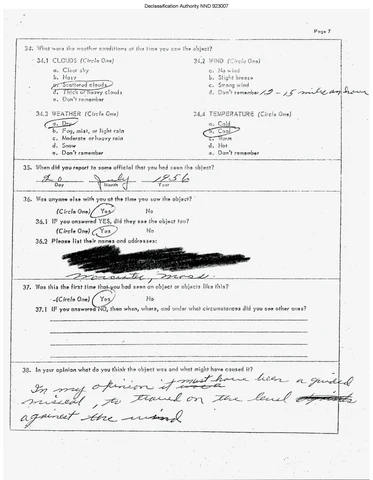 Declassification Authority NND 923007
Page 7
34. What were the weather conditions at the time you saw the object?
34.1 CLOUDS (Circle One) 34.2 WIND (Circle One)
a. Clear sky a. No wind
b. Hazy b. Slight breeze
c. Scattered clouds c. Strong wind
d. Thick or heavy clouds d. Don't remember 12 - 15 mile an hour
e. Don't remember
34.3 WEATHER (Circle One) 34.4 TEMPERATURE (Circle One)
a. Dry a. Cold
b. Fog, mist, or light rain b. Cool
c. Moderate or heavy rain c. Warm
d. Snow d. Hot
e. Don't remember e. Don't remember
35. When did you report to some official that you had seen the object?
July 1956
Day Month Year
36. Was anyone else with you at the time you saw the object?
(Circle One) Yes No
36.1 IF you answered YES, did they see the object too?
(Circle One) Yes No
36.2 Please list their names and addresses:
Worcester, Mass.
37. Was this the first time that you had seen an object or objects like this?
(Circle One) Yes No
37.1 IF you answered NO, then when, where, and under what circumstances did you see other ones?
38. In your opinion what do you think the object was and what might have caused it?
In my opinion it must have been a guided
misseal, to travel on the level
against the wind